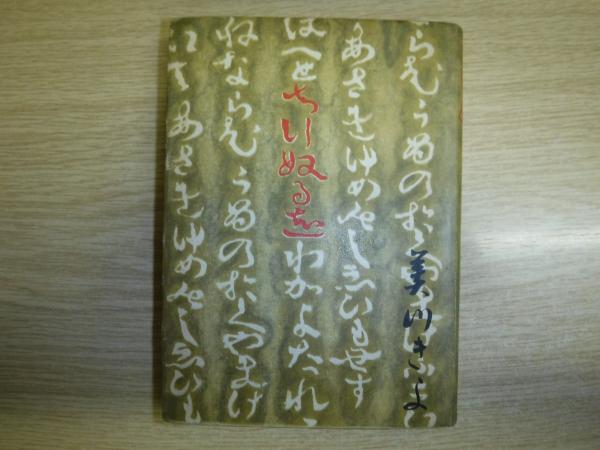 らむうゐのおく
美川きよ
あさきゆめみしゑひもせす
ほへとちり奴る遠わかよたれそ
ねならむうゐのおくやまけ
えてあさきゆめみしゑひも